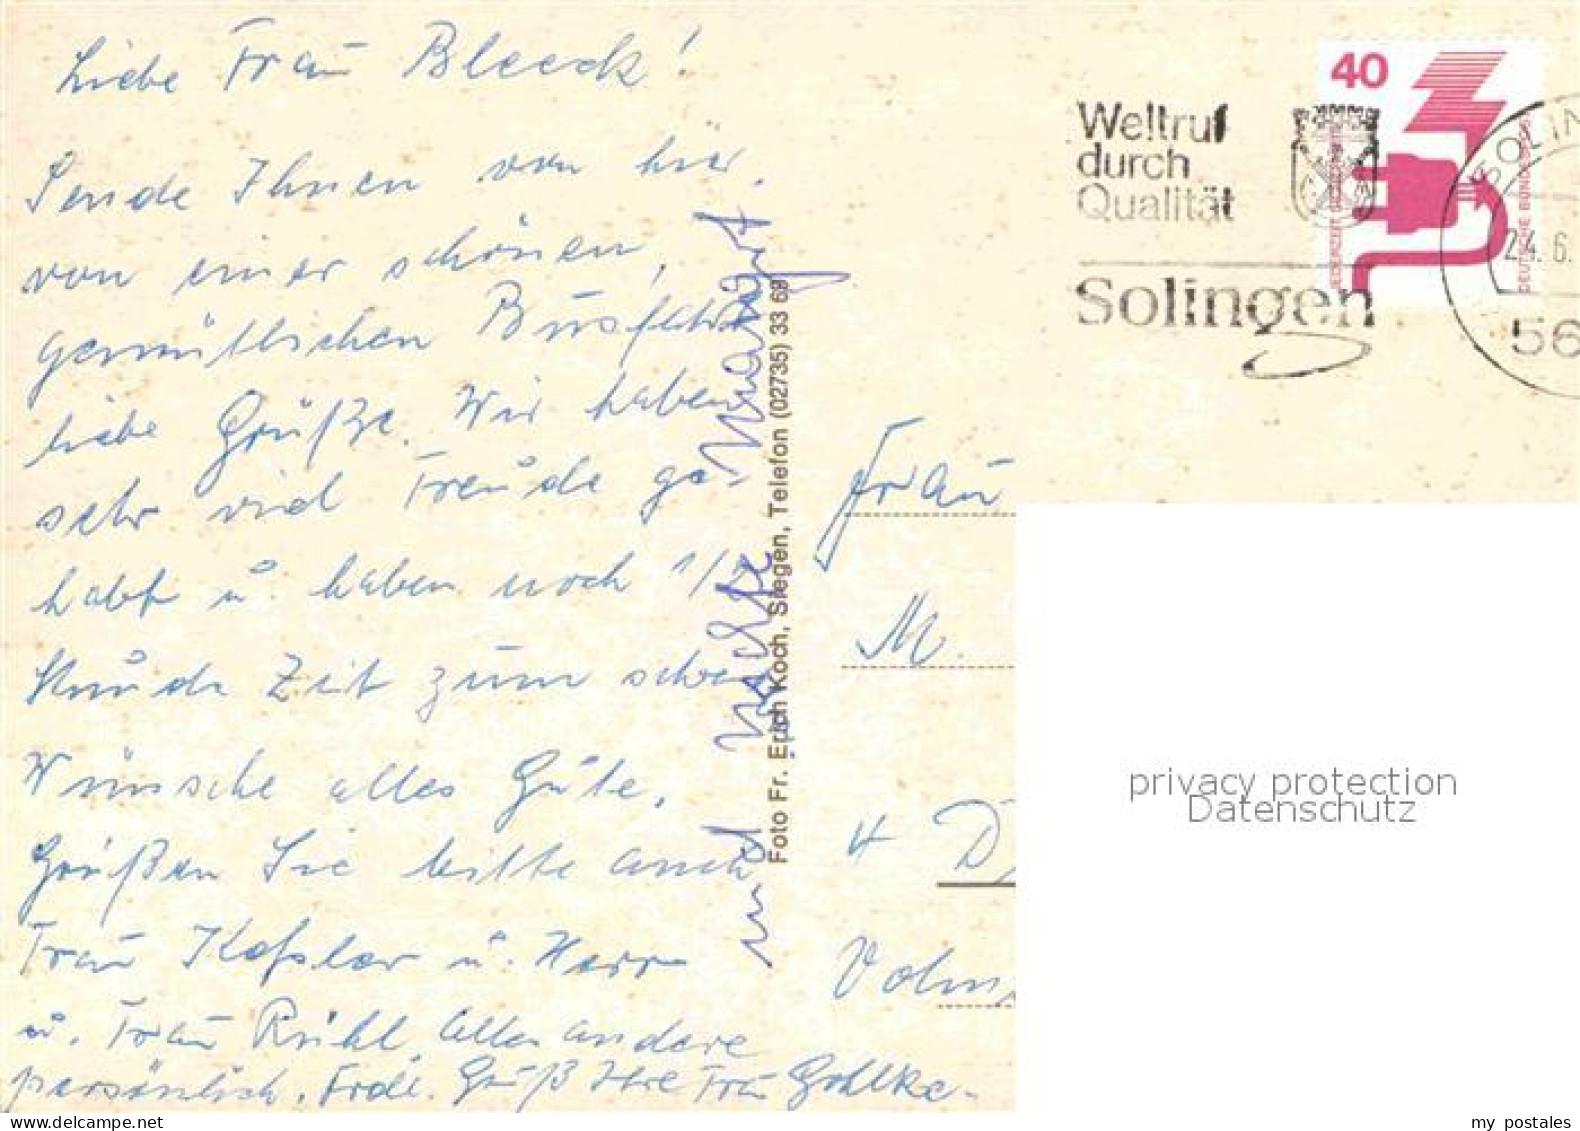 Liebe Frau Bleeck!
Sende Ihnen von hier,
von einer schönen,
gemütlichen Busfahrt
liebe Grüße. Wir haben
sehr viel Freude ge-
habt u. haben noch 1/2
Stunde Zeit zum
Wünsche alles Gute.
Grüßen Sie bitte auch
Frau Keßler u. Herr
u. Frau Rühl. Alles andere
persönlich. Frdl. Gruß Ihre Frau Gohlke
und Nichte Margot
Foto Fr. Erich Koch, Siegen, Telefon (02735) 33 69
Weltruf
durch
Qualität
Solingen
40
JEDERZEIT SICHERHEIT
DEUTSCHE BUNDESPOST
SOLIN
24.6.
56
Frau
M.
4 D
Volm
privacy protection
Datenschutz
my postales